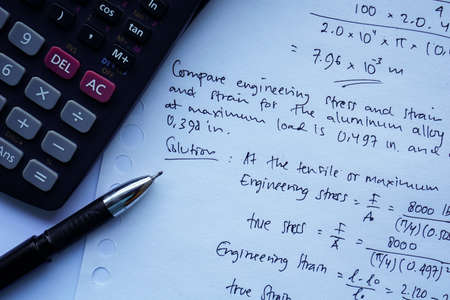 100 × 2.0. 4
2.0 × 10⁴ × π × (0.
= 7.96 × 10⁻³ m
Compare engineering stress and strain
and strain for the aluminum alloy
at maximum load is 0.497 in. and
0.398 in.
Solution : At the tensile or maximum
Engineering stress = F/A₀ = 8000 lb / (π/4)(0.505
true stress = F/A = 8000 / (π/4)(0.497)²
Engineering strain = l - l₀ / l₀ = 2.120 - 2
true strain
cos
tan⁻¹
tan
m+
9
DEL
AC
6
×
÷
3
+
-
Ans
=